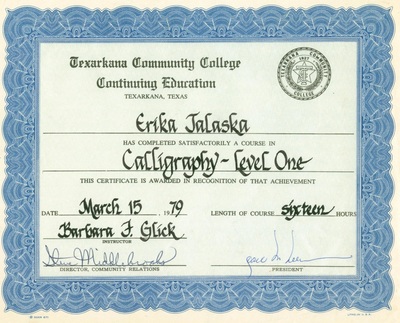 Texarkana Community College
Continuing Education
TEXARKANA, TEXAS
TEXARKANA COMMUNITY
COLLEGE
Erika Talaska
HAS COMPLETED SATISFACTORILY A COURSE IN
Calligraphy - Level One
THIS CERTIFICATE IS AWARDED IN RECOGNITION OF THAT ACHIEVEMENT
DATE March 15, 1979 LENGTH OF COURSE sixteen HOURS
Barbara F. Glick
INSTRUCTOR
Steve Middlebrooks
DIRECTOR, COMMUNITY RELATIONS
, PRESIDENT